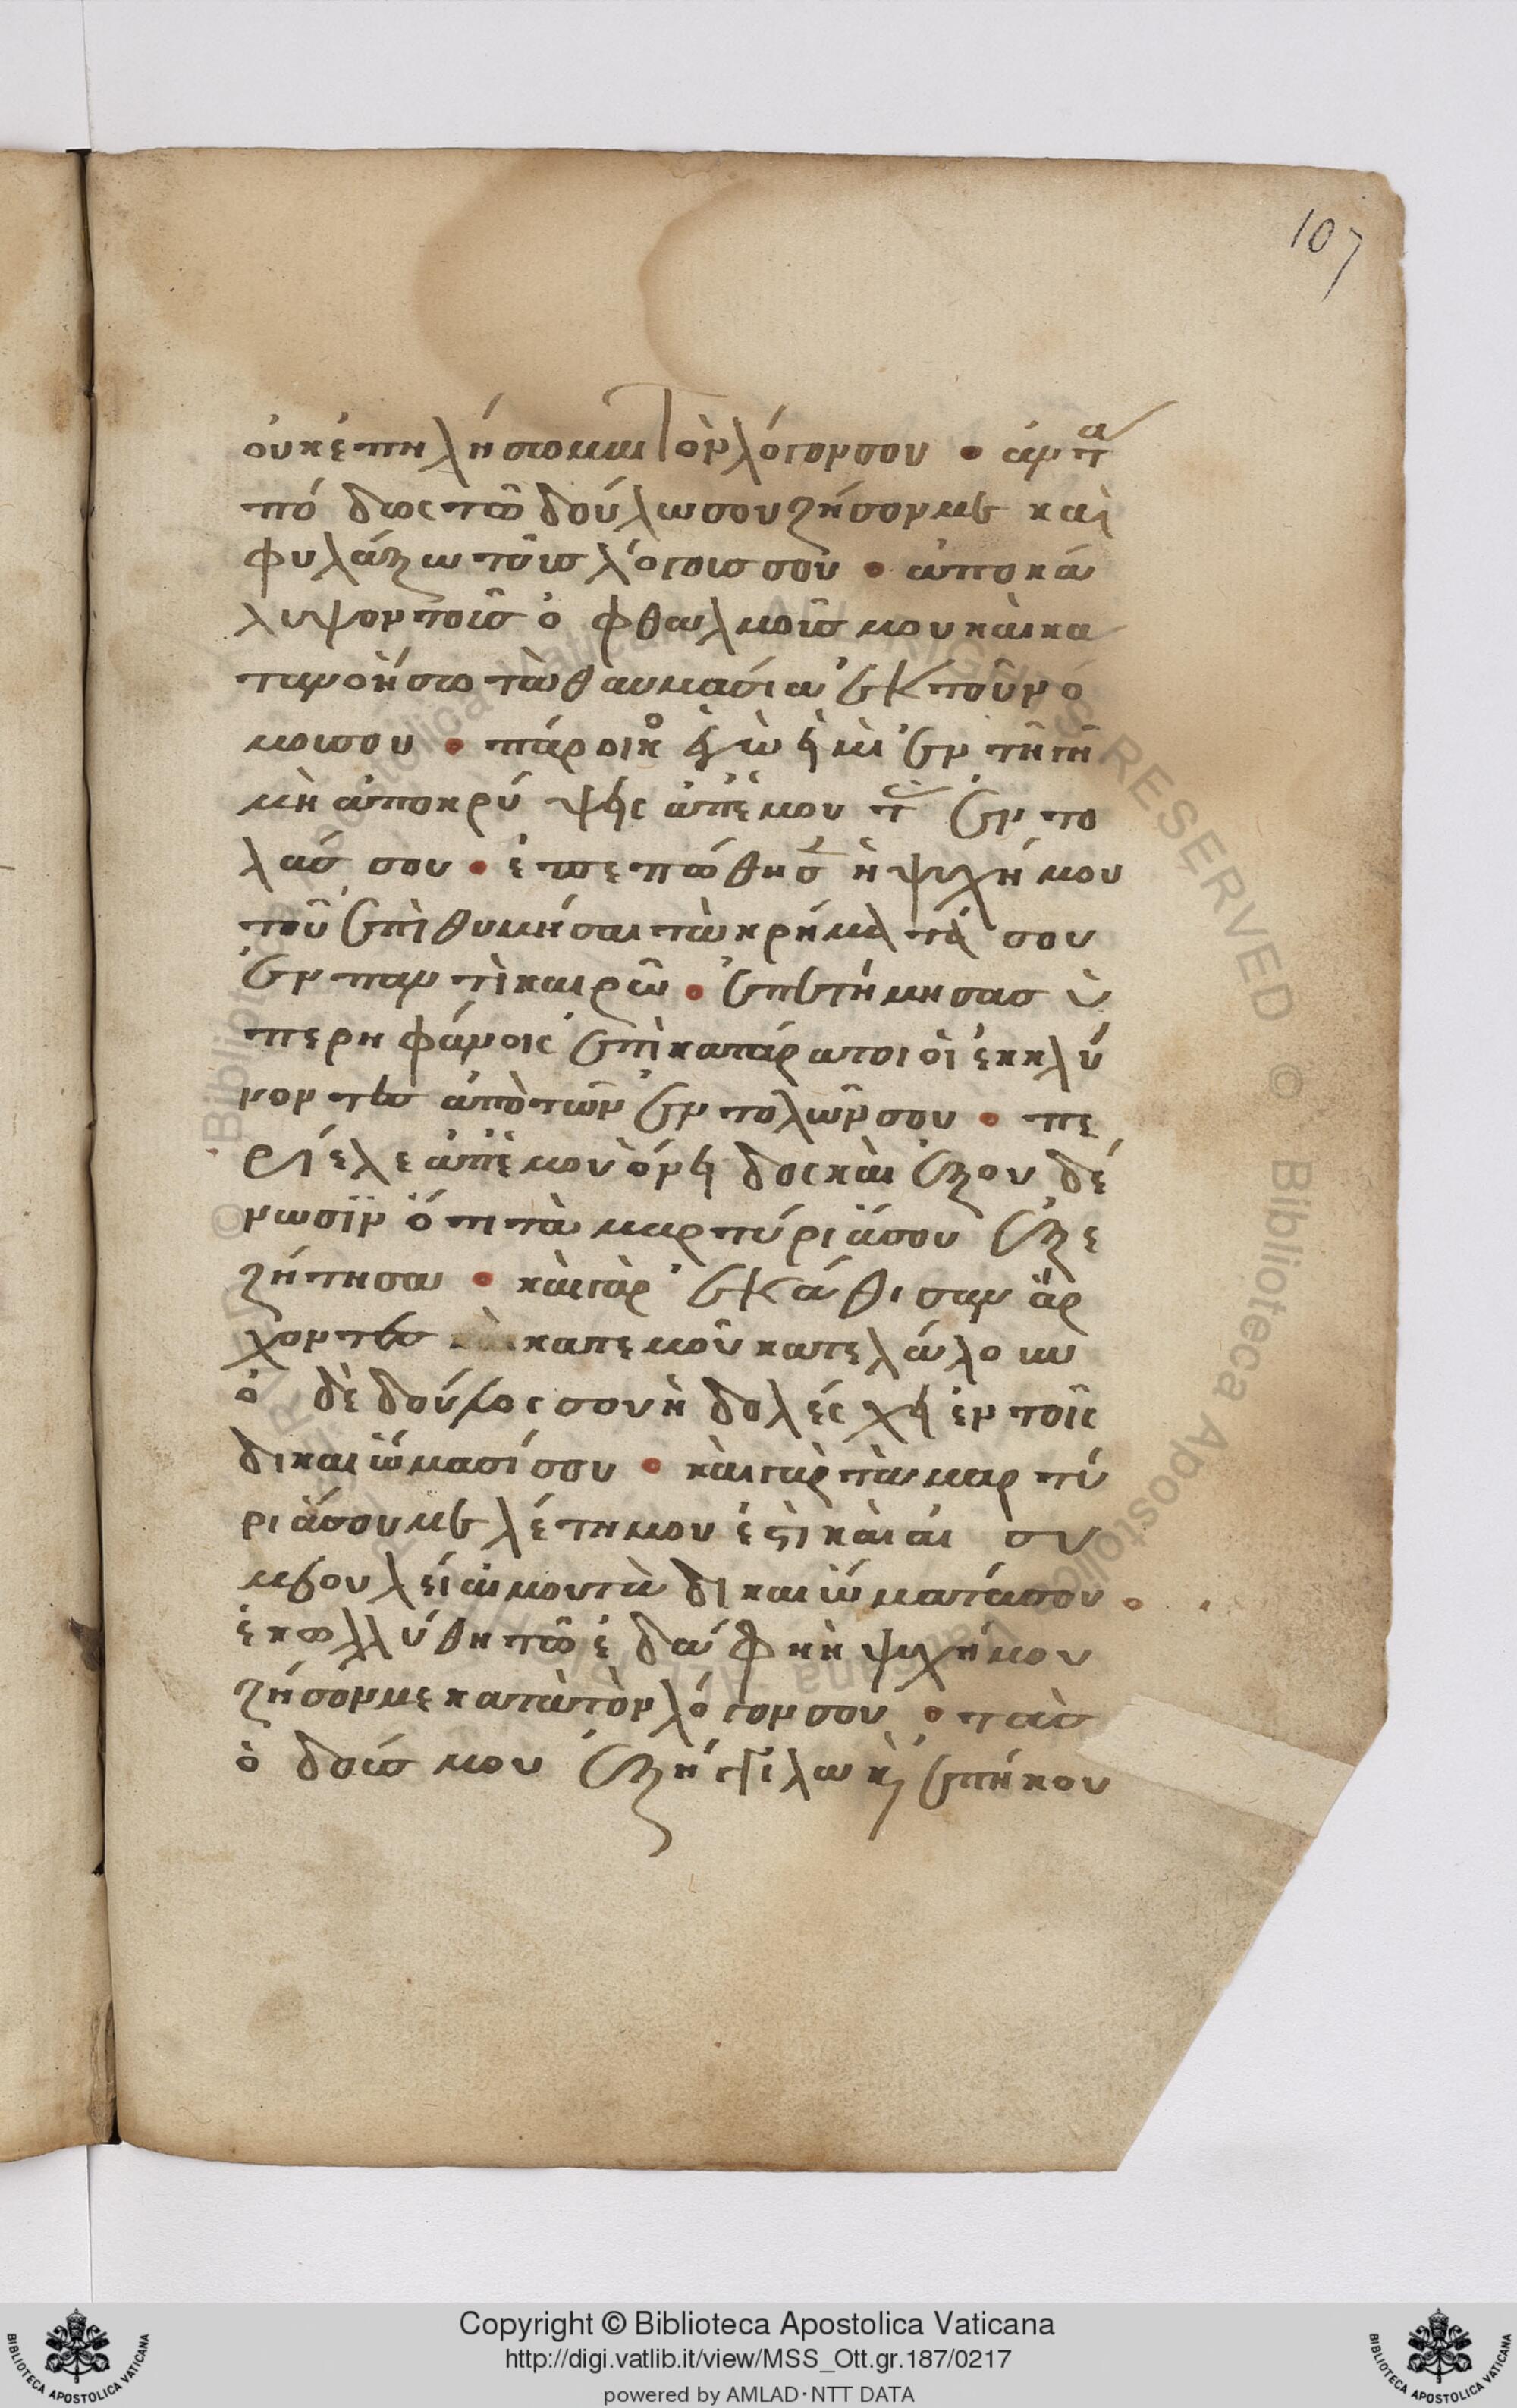 107
οὐκ ἐπηλήσωμαι τὸν λόγον σου • ἀντ(α)
πόδως τῶ δούλω σου ζήσον με καὶ
φυλάξω τοῖσ λόγοισ σου • ἀποκά
λυψον τοῖσ ὀφθαλμοῖσ μου καὶ κα
τανοήσω τὰ θαυμασία ἐκ τοῦ νό
μοι σου • πάροικο(ς) ἐγὼ εἰμὶ ἐν τῆ γῆ
μὴ ἀποκρύψης ἀπ' ἐμοῦ τ(ὰς) ἐντο
λάσ σου • ἐπεπώθησ(εν) ἡ ψυχή μου
τοῦ ἐπιθυμήσαι τὰ κρήματά σου
ἐν παντὶ καιρῶ • ἐπετήμησασ ὑ
περηφάνοις ἐπικατάρατοι οἱ ἐκκλύ
νοντεσ ἀπὸ τῶν ἐντολῶν σου • πε
ρίελε ἀπ' ἐμοῦ ὄνειδος καὶ ἐξουδέ
νωσϊν ὅτι τὰ μαρτύριά σου ἐξε
ζήτησα • καὶ γὰρ ἐκάθισαν ἄρ
χοντεσ καὶ κατεμοῦ κατελάλουν
ὁ δὲ δοῦλος σου ἠδολέσχη ἐν τοῖς
δικαιώμασί σου • καὶ γὰρ τὰ μαρτύ
ριά σου μελέτη μου ἐστὶ καὶ αἱ συ
μβουλείαι μου τὰ δικαιώματά σου •
ἐκωλλύθη τῶ ἐδάφη ἡ ψυχή μου
ζήσόν με κατὰ τὸν λόγον σου • τὰσ
ὁδούσ μου ἐξήγγιλα κ(αὶ) ἐπήκου
Copyright © Biblioteca Apostolica Vaticana
http://digi.vatlib.it/view/MSS_Ott.gr.187/0217
powered by AMLAD·NTT DATA